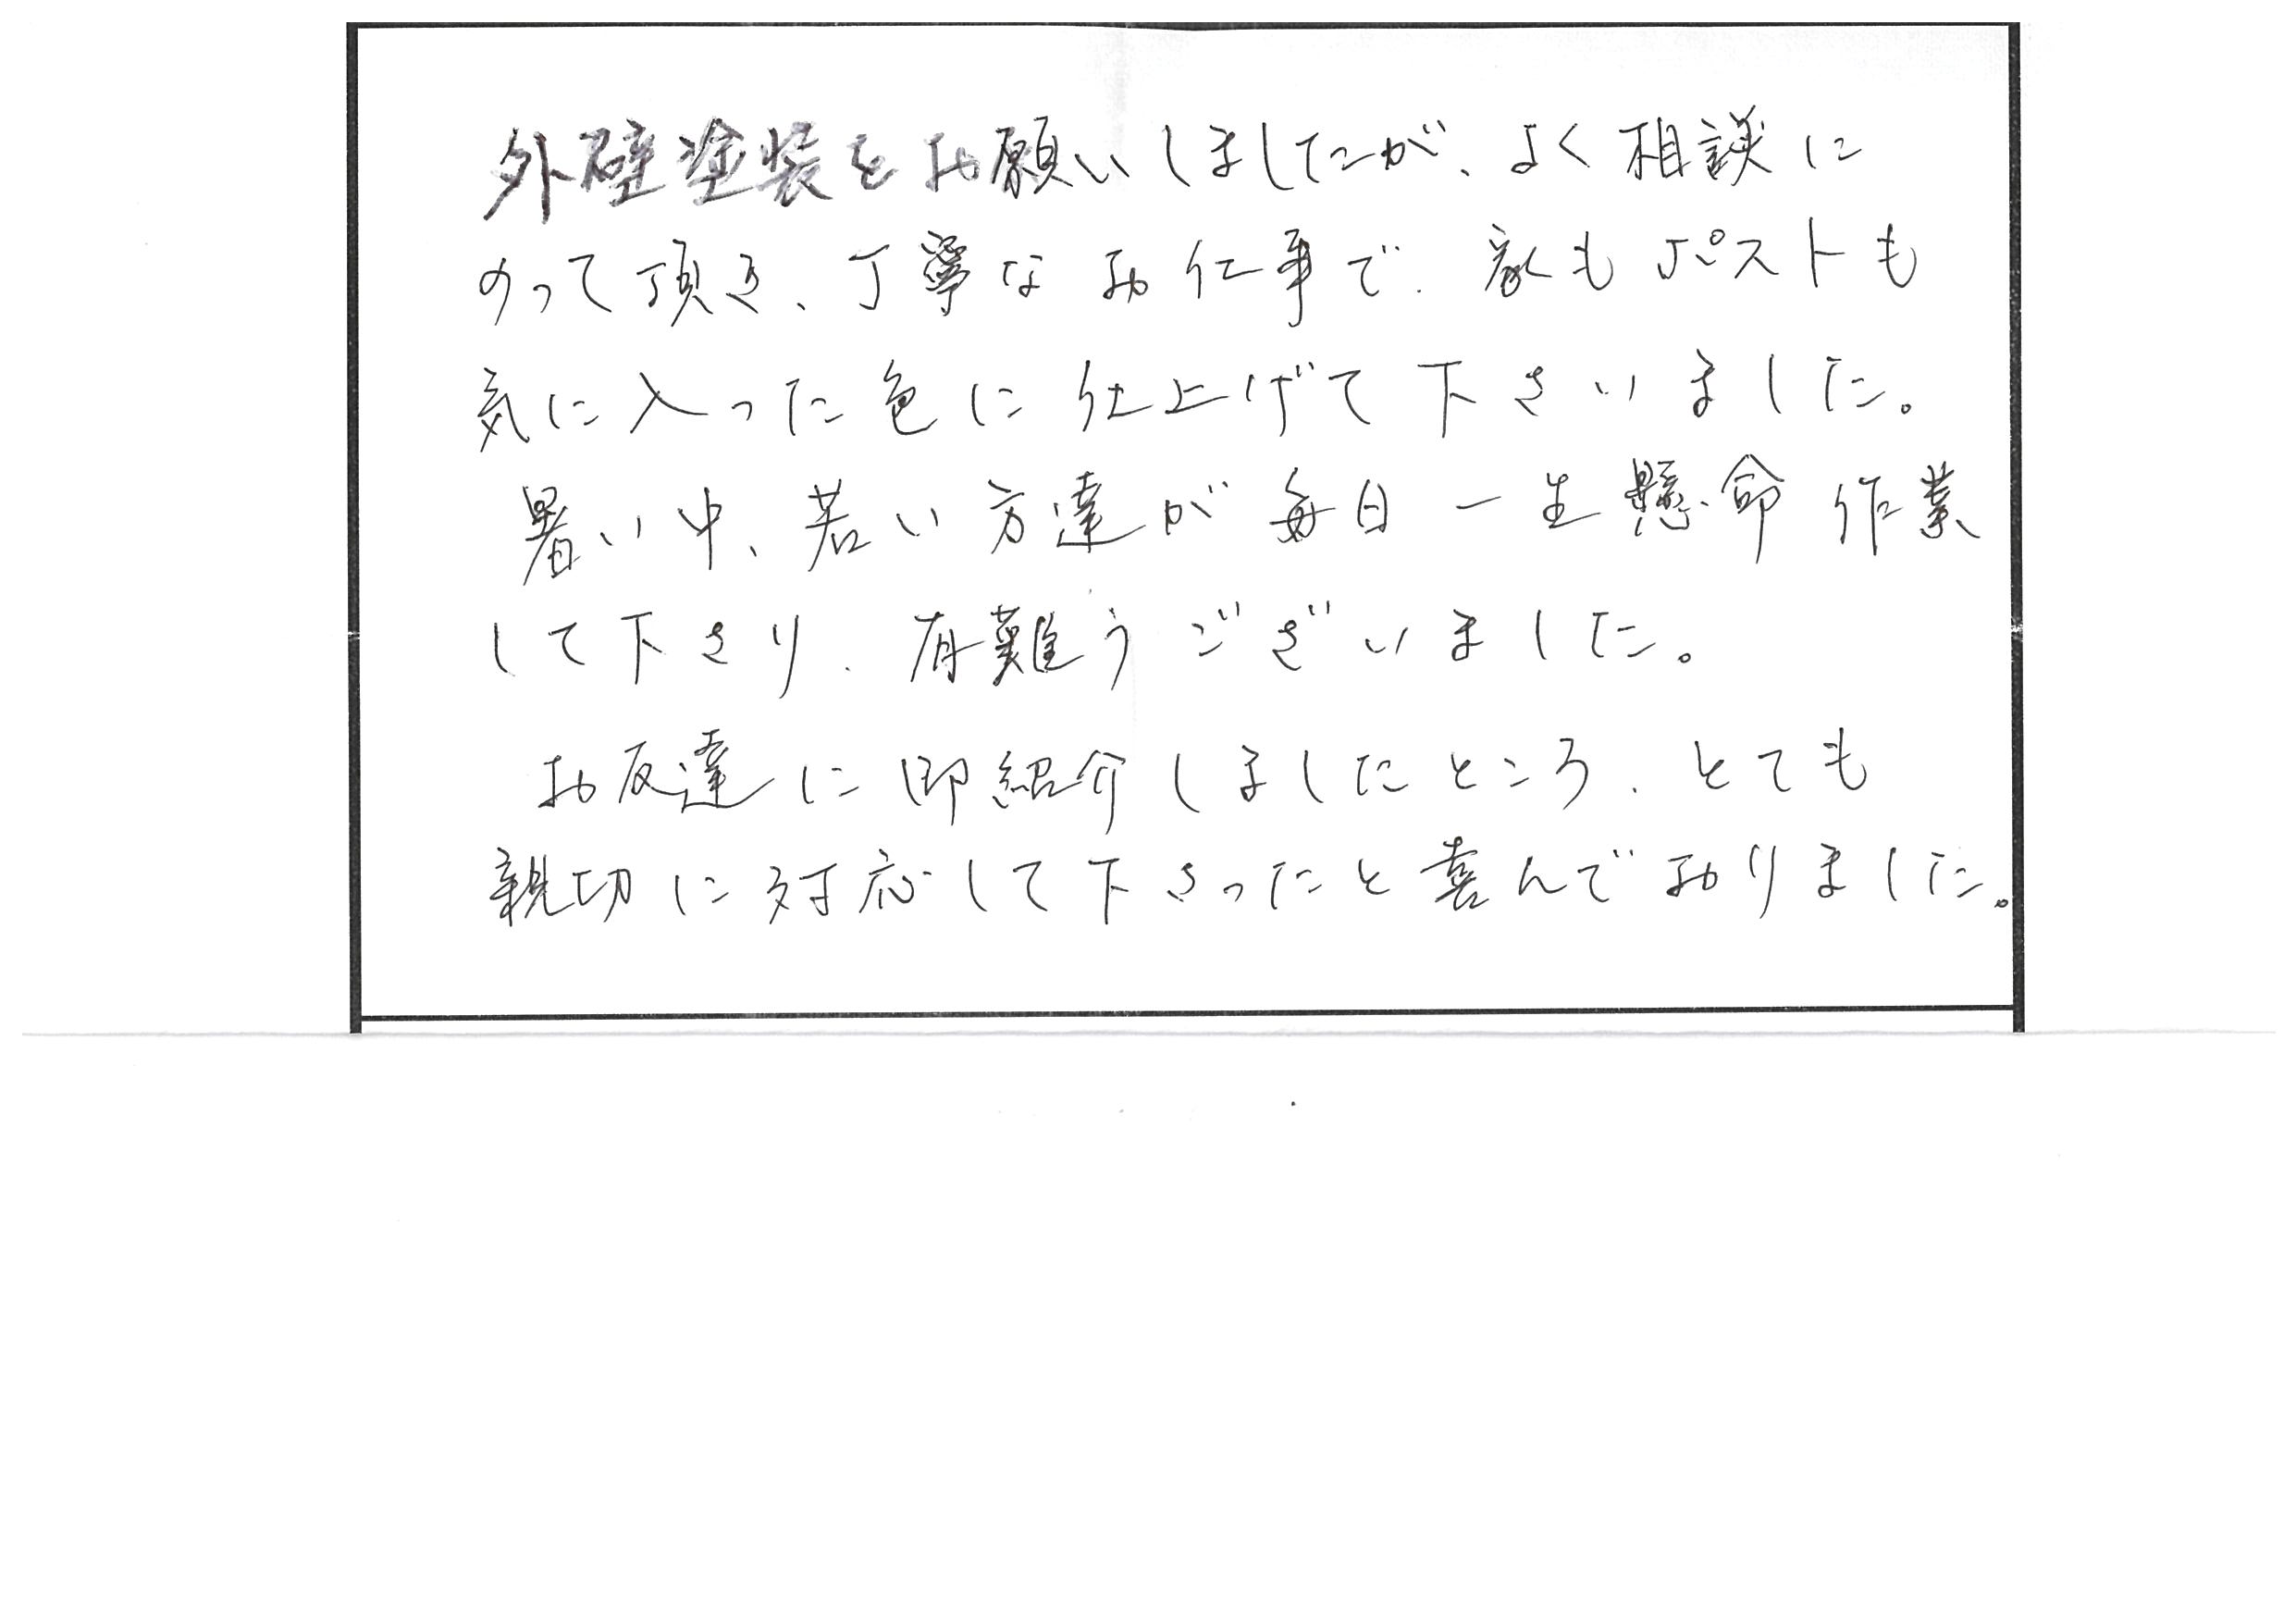 外壁塗装をお願いしましたが、よく相談に
のって頂き、丁寧なお仕事で、家もポストも
気に入った色に仕上げて下さいました。
暑い中、若い方達が毎日一生懸命作業
して下さり、有難うございました。
お友達に即紹介しましたところ、とても
親切に対応して下さったと喜んでおりました。